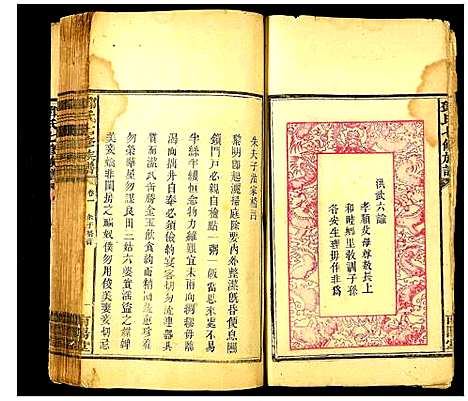 洪武六諭
孝順父母尊敬長上
和睦鄉里教訓子孫
各安生理毋作非為
南陽堂
朱夫子治家格言
黎明即起灑掃庭除要內外整潔既昏便息關
鎖門戶必親自檢點一粥一飯當思來處不易
半絲半縷恒念物力維艱宜未雨而綢繆毋臨
渴而掘井自奉必須儉約宴客切勿留連器具
質而潔瓦缶勝金玉飲食約而精園蔬愈珍羞
勿營華屋勿謀良田三姑六婆實淫盜之媒婢
美妾嬌非閨房之福奴僕勿用俊美妻妾切忌
卷一
南陽堂